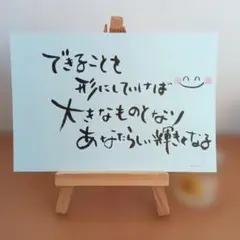 できることを
形にしていけば
大きなものとなり
あなたらしい輝きとなる